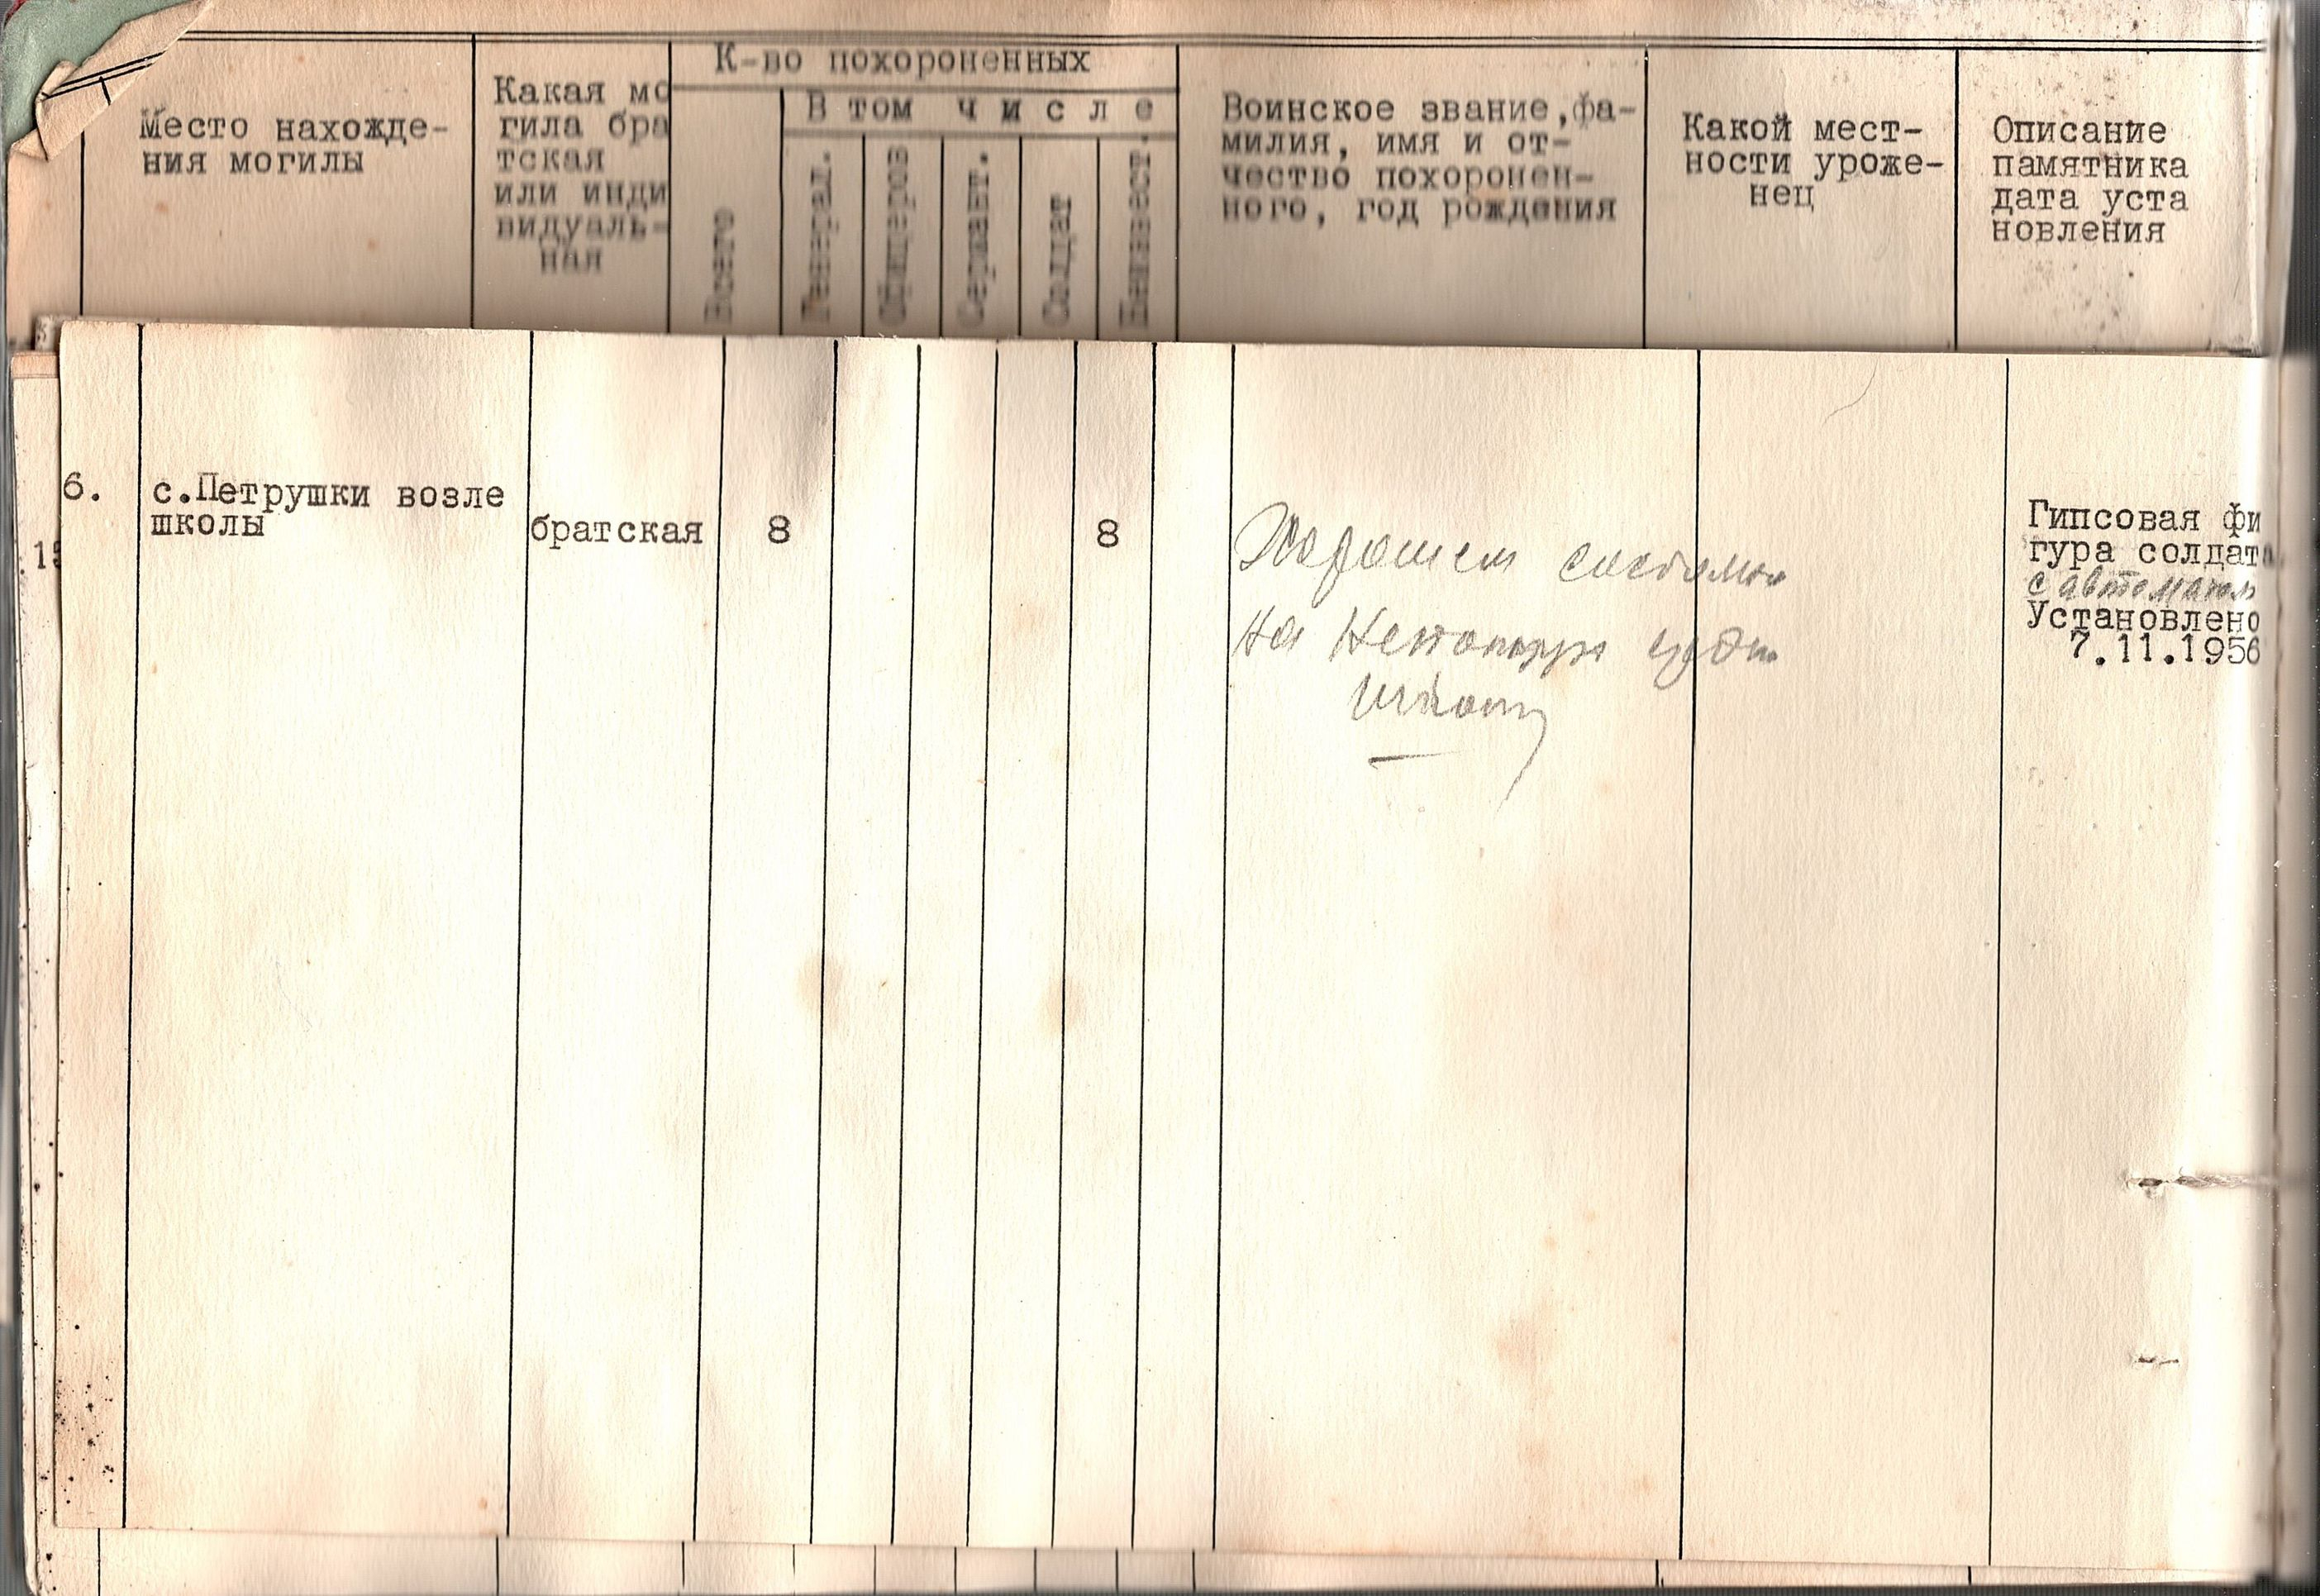 Место нахожде-
ния могилы
Какая мо
гила бра
тская
или инди
видуаль-
ная
К-во похороненных
В том числе
Всего
Генерал.
Офицеров
Сержант.
Солдат
Неизвест.
Воинское звание, фа-
милия, имя и от-
чество похоронен-
ного, год рождения
Какой мест-
ности уроже-
нец
Описание
памятника
дата уста
новления
6.
с.Петрушки возле
школы
братская
8
8
Хорошем
на
Гипсовая фи
гура солдата
с автоматом
Установлено
7.11.1956
15